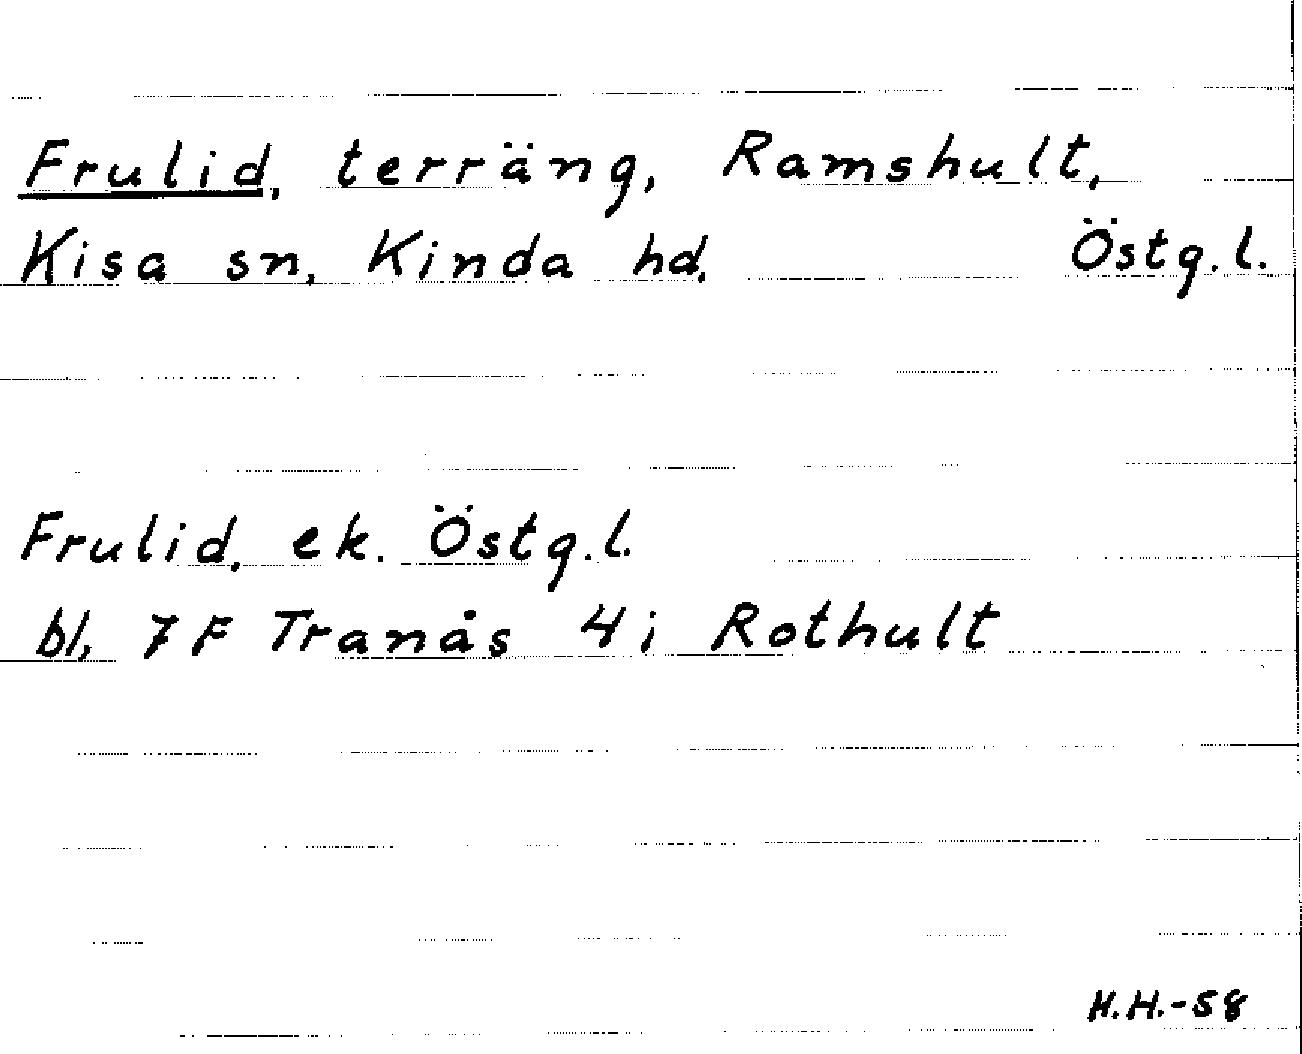 Frulid, terräng, Ramshult,
Kisa sn, Kinda hd. Östg.l.
Frulid, ek. Östg.l.
bl, 7F Tranås 4i Rothult
H.H.-58